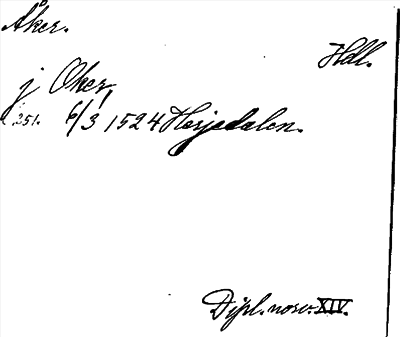 Åker.
Hdl.
j Oker,
251. 6/3 1524 Herjedalen.
Dipl. norv. XIV.